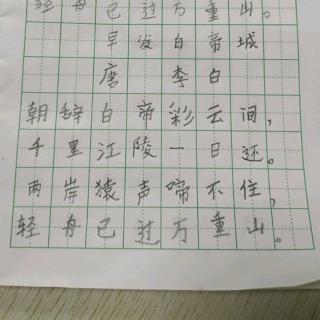 轻舟已过万重山。
早发白帝城
唐 李白
朝辞白帝彩云间,
千里江陵一日还。
两岸猿声啼不住,
轻舟已过万重山。